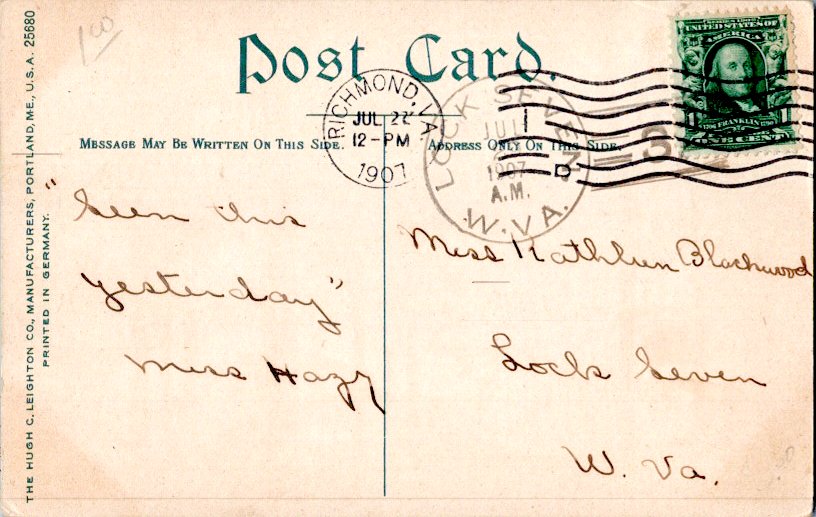 1 00
Post Card.
MESSAGE MAY BE WRITTEN ON THIS SIDE.
ADDRESS ONLY ON THIS SIDE.
THE HUGH C. LEIGHTON CO., MANUFACTURERS, PORTLAND, ME., U.S.A. 25680
PRINTED IN GERMANY.
RICHMOND, VA.
JUL
12-PM
1907
LOCK SEVEN
JUL
1907
A.M.
W. VA.
D
3
UNITED STATES OF
AMERICA
FRANKLIN
ONE CENT
"Seen this
yesterday"
Miss
Miss Kathleen Blackwood
Lock Seven
W. Va.